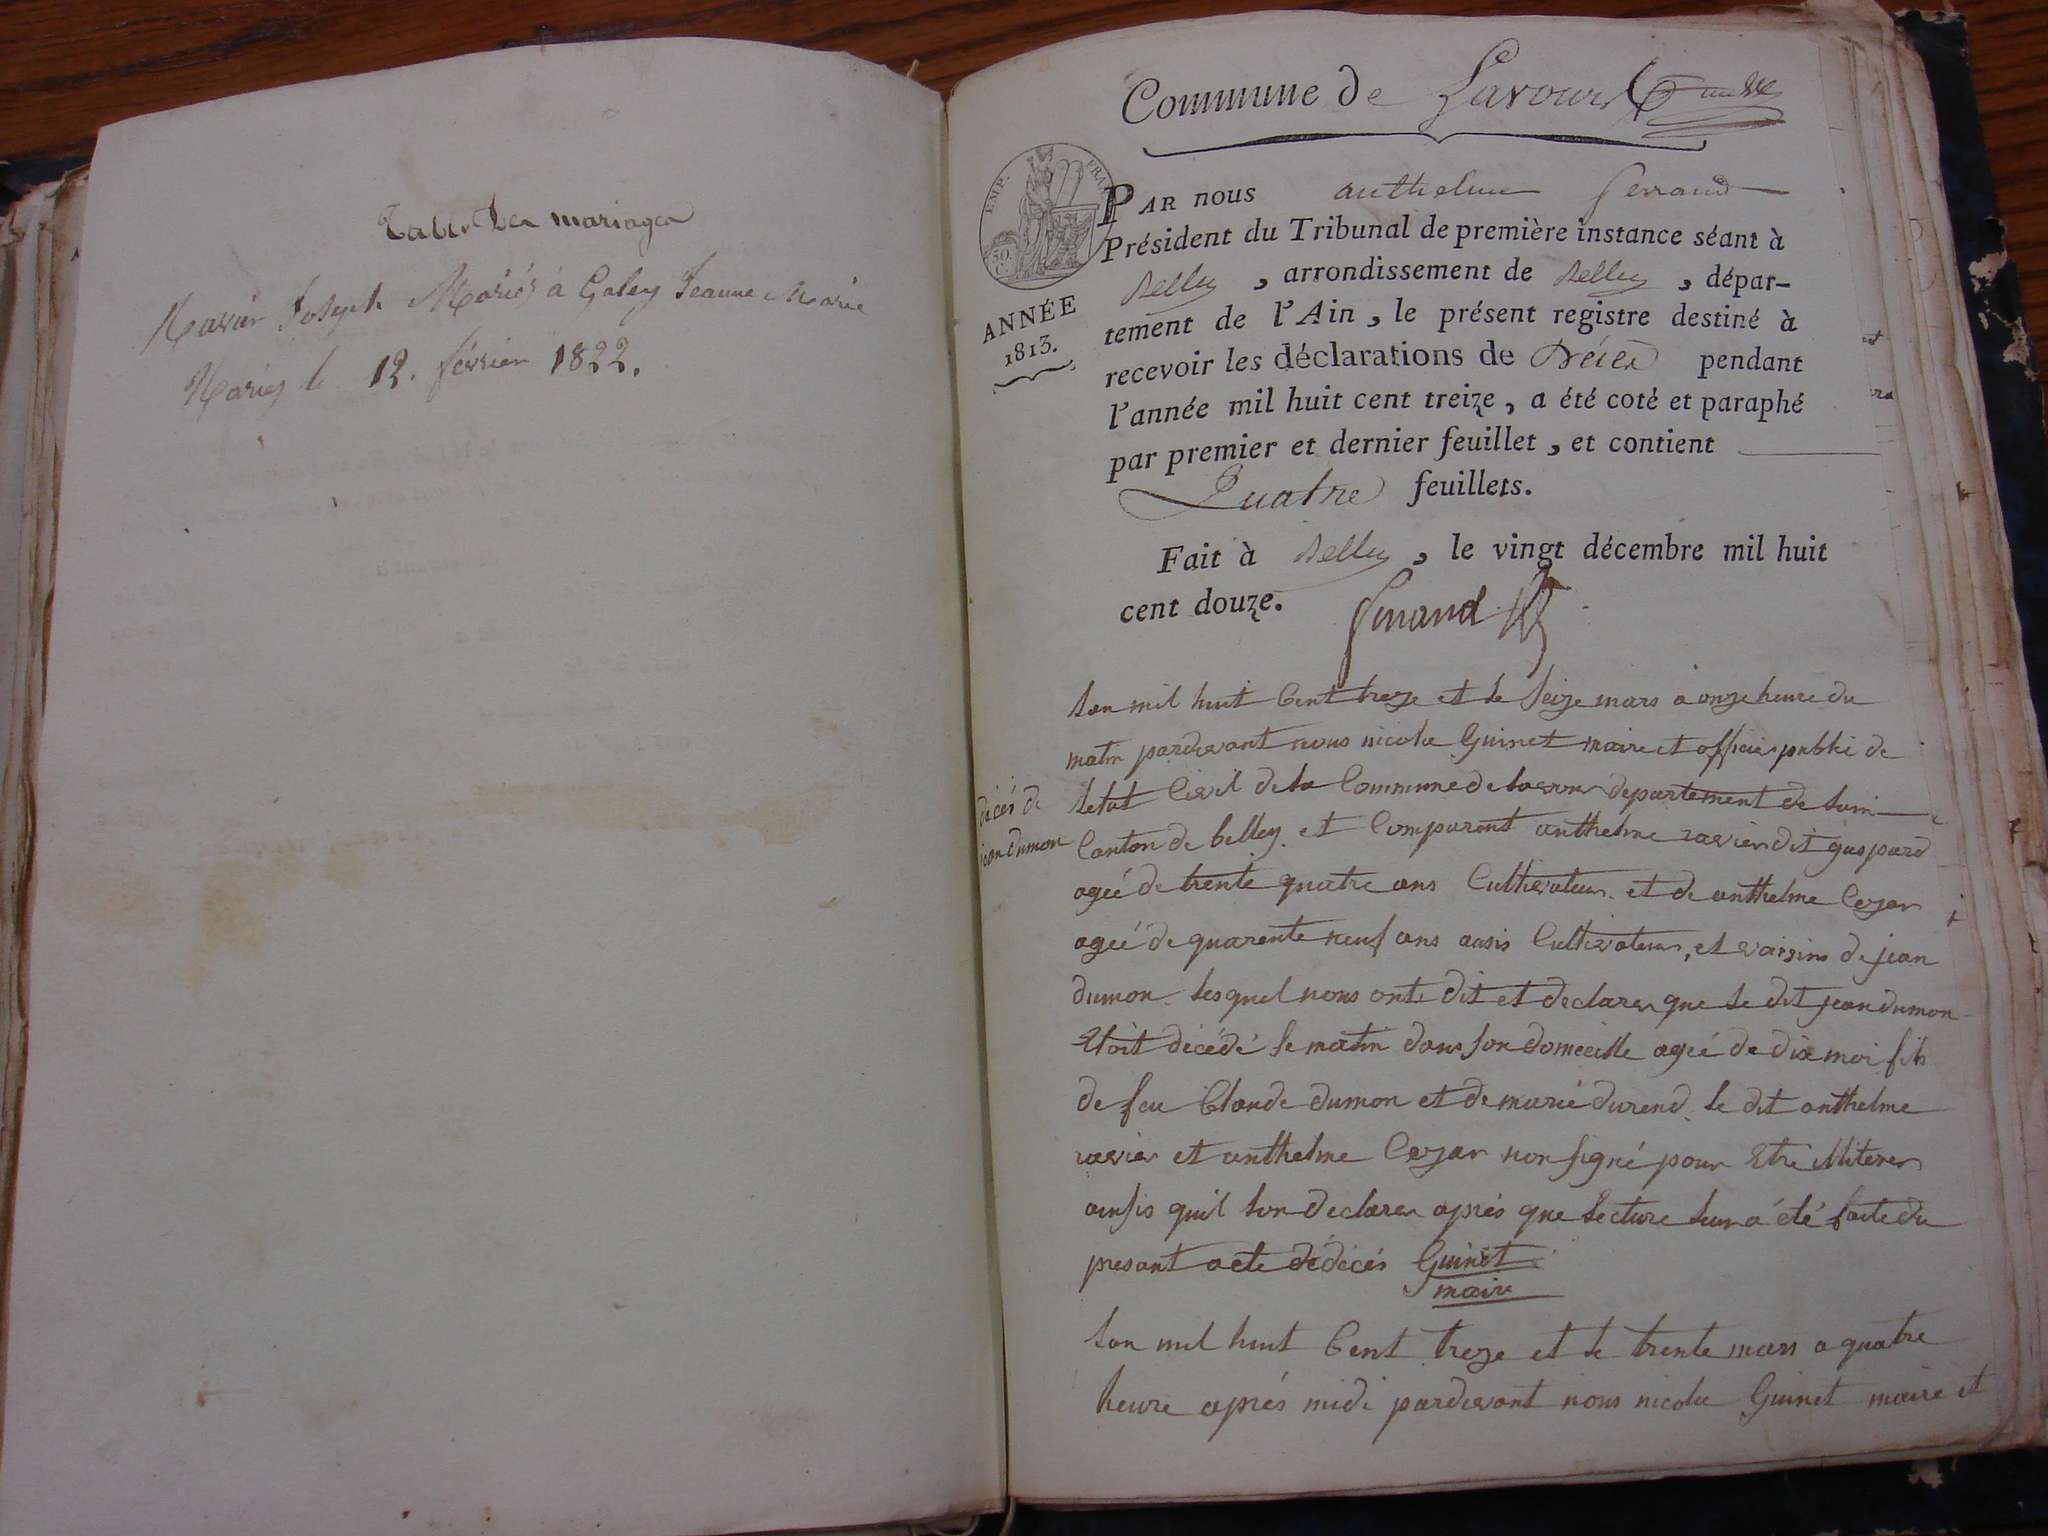 Table des mariages
Ravier Joseph Mariés à Galey Jeanne Marie
Mariés le 12. février 1822.
Commune de Lavours
EMP. FRAN
50. C.
ANNÉE
1813.
PAR nous anthelme ferrand
Président du Tribunal de première instance séant à
Belley, arrondissement de Belley, dépar-
tement de l'Ain, le présent registre destiné à
recevoir les déclarations de Décès pendant
l'année mil huit cent treize, a été coté et paraphé
par premier et dernier feuillet, et contient
Quatre feuillets.
Fait à Belley, le vingt décembre mil huit
cent douze.
ferrand
décés de
jean dumon
Lan mil huit Cent treze et le seize mars a onze heure du
matin pardevant nous nicolas Guinet maire et officier publié de
letat Civil de la Commune de lavour departement de lain
Canton de belley et Comparont anthelme ravier dit gaspard
ageé de trente quatre ans Cultivateur et de anthelme Cezar
ageé de quarente neuf ans ausis Cultivateur, et voisins de jean
dumon lesquel nous onts dit et declarer que le dit jean dumon
Etoit décédé le matin dans son domecille ageé de dix moi fils
de feu Claude dumon et de marie durend le dit anthelme
ravier et anthelme Cezar non signé pour Etre illiterer
ainsis quil lon declarer aprés que lecture leur a été faite du
presant acte de décés Guinet
maire
Lan mil huit Cent treze et le trente mars a quatre
heure aprés midi pardevant nous nicolas Guinet maire et